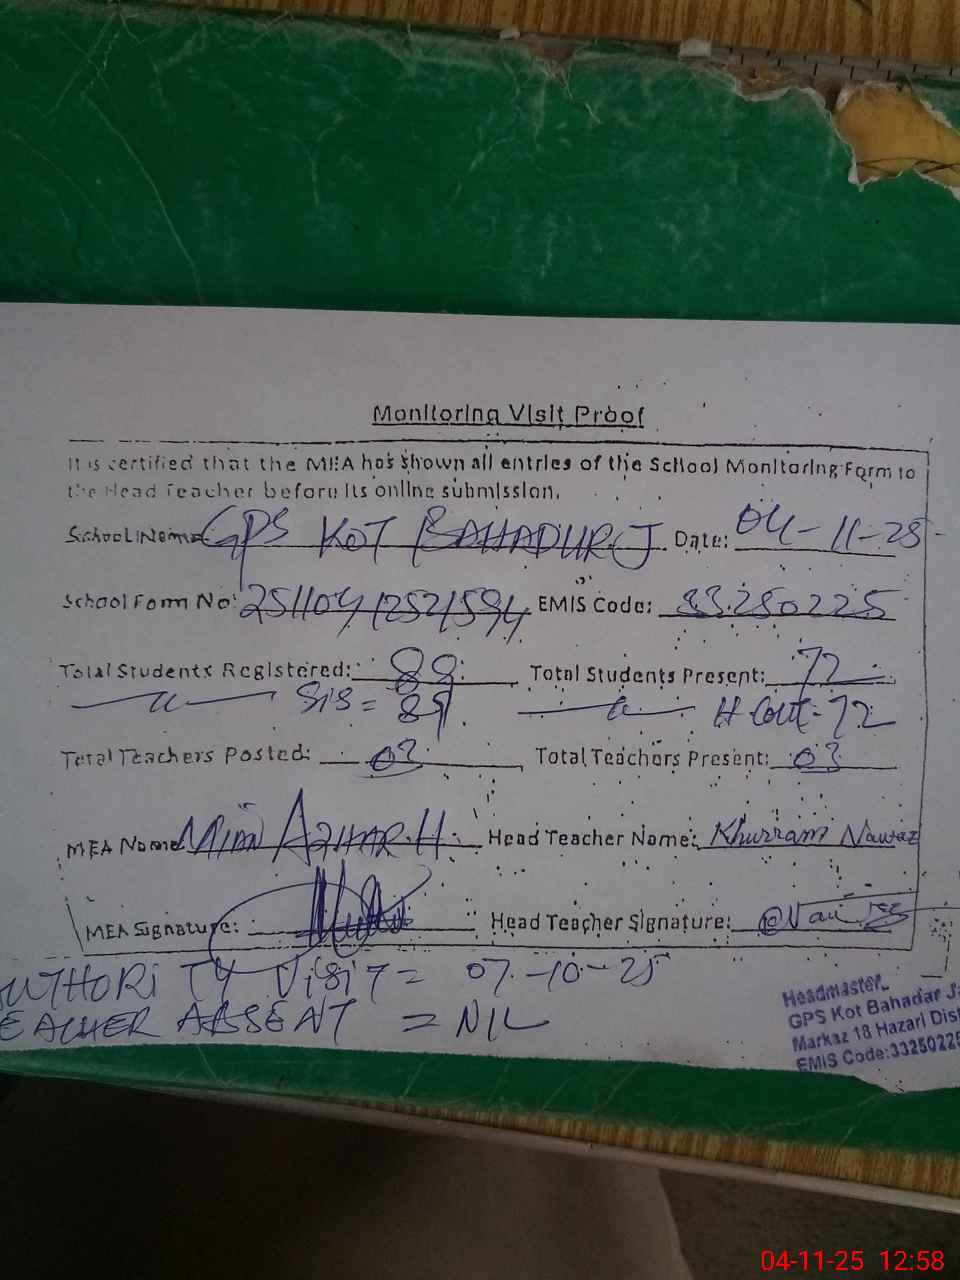 Monitoring Visit Proof
It is certified that the MEA has shown all entries of the School Monitoring Form to
the Head Teacher before its online submission.
School Name: GPS KOT BAHADUR.J Date: 04-11-25
School Form No: EMIS Code: 33250225
Total Students Registered: 88 Total Students Present: 72
SIS = 89 H Cout = 72
Total Teachers Posted: 03 Total Teachers Present: 03
MEA Name: Mian AZHAR.H Head Teacher Name: Khurram Nawaz
MEA Signature: Head Teacher Signature:
UTHORITY VISIT = 07-10-25
EACHER ABSENT = NIL
Headmaster
GPS Kot Bahadar Ja
Markaz 18 Hazari Dist
EMIS Code:33250225
04-11-25 12:58